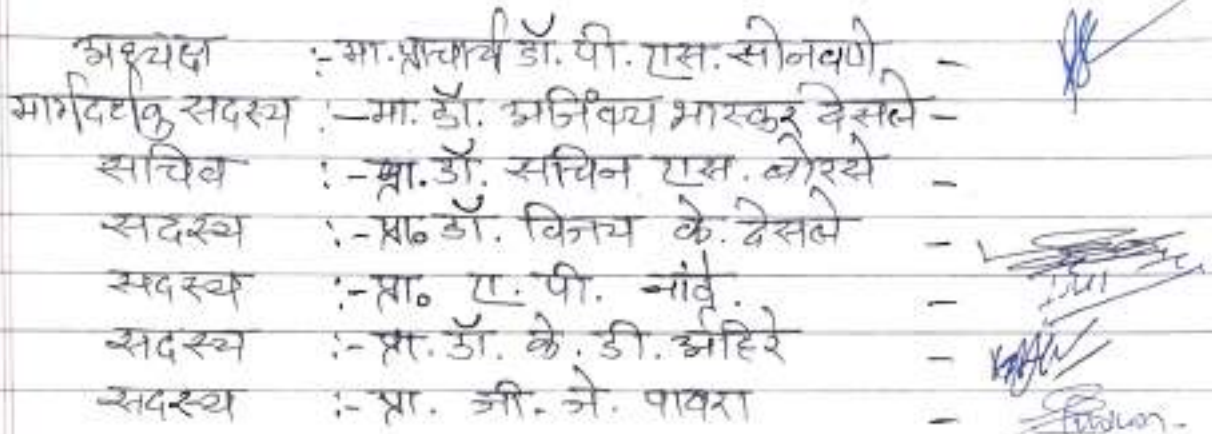 अध्यक्ष :- मा. प्राचार्य डॉ. पी. एस. सोनवणे -
मार्गदर्शक सदस्य :- मा. डॉ. अजिंक्य भास्कर देसले -
सचिव :- प्रा. डॉ. सचिन एस. बोरसे -
सदस्य :- प्रा. डॉ. विजय के. देसले -
सदस्य :- प्रा. ए. पी. -
सदस्य :- प्रा. डॉ. के. डी. अहिरे -
सदस्य :- प्रा. जी. जे. पावरा -